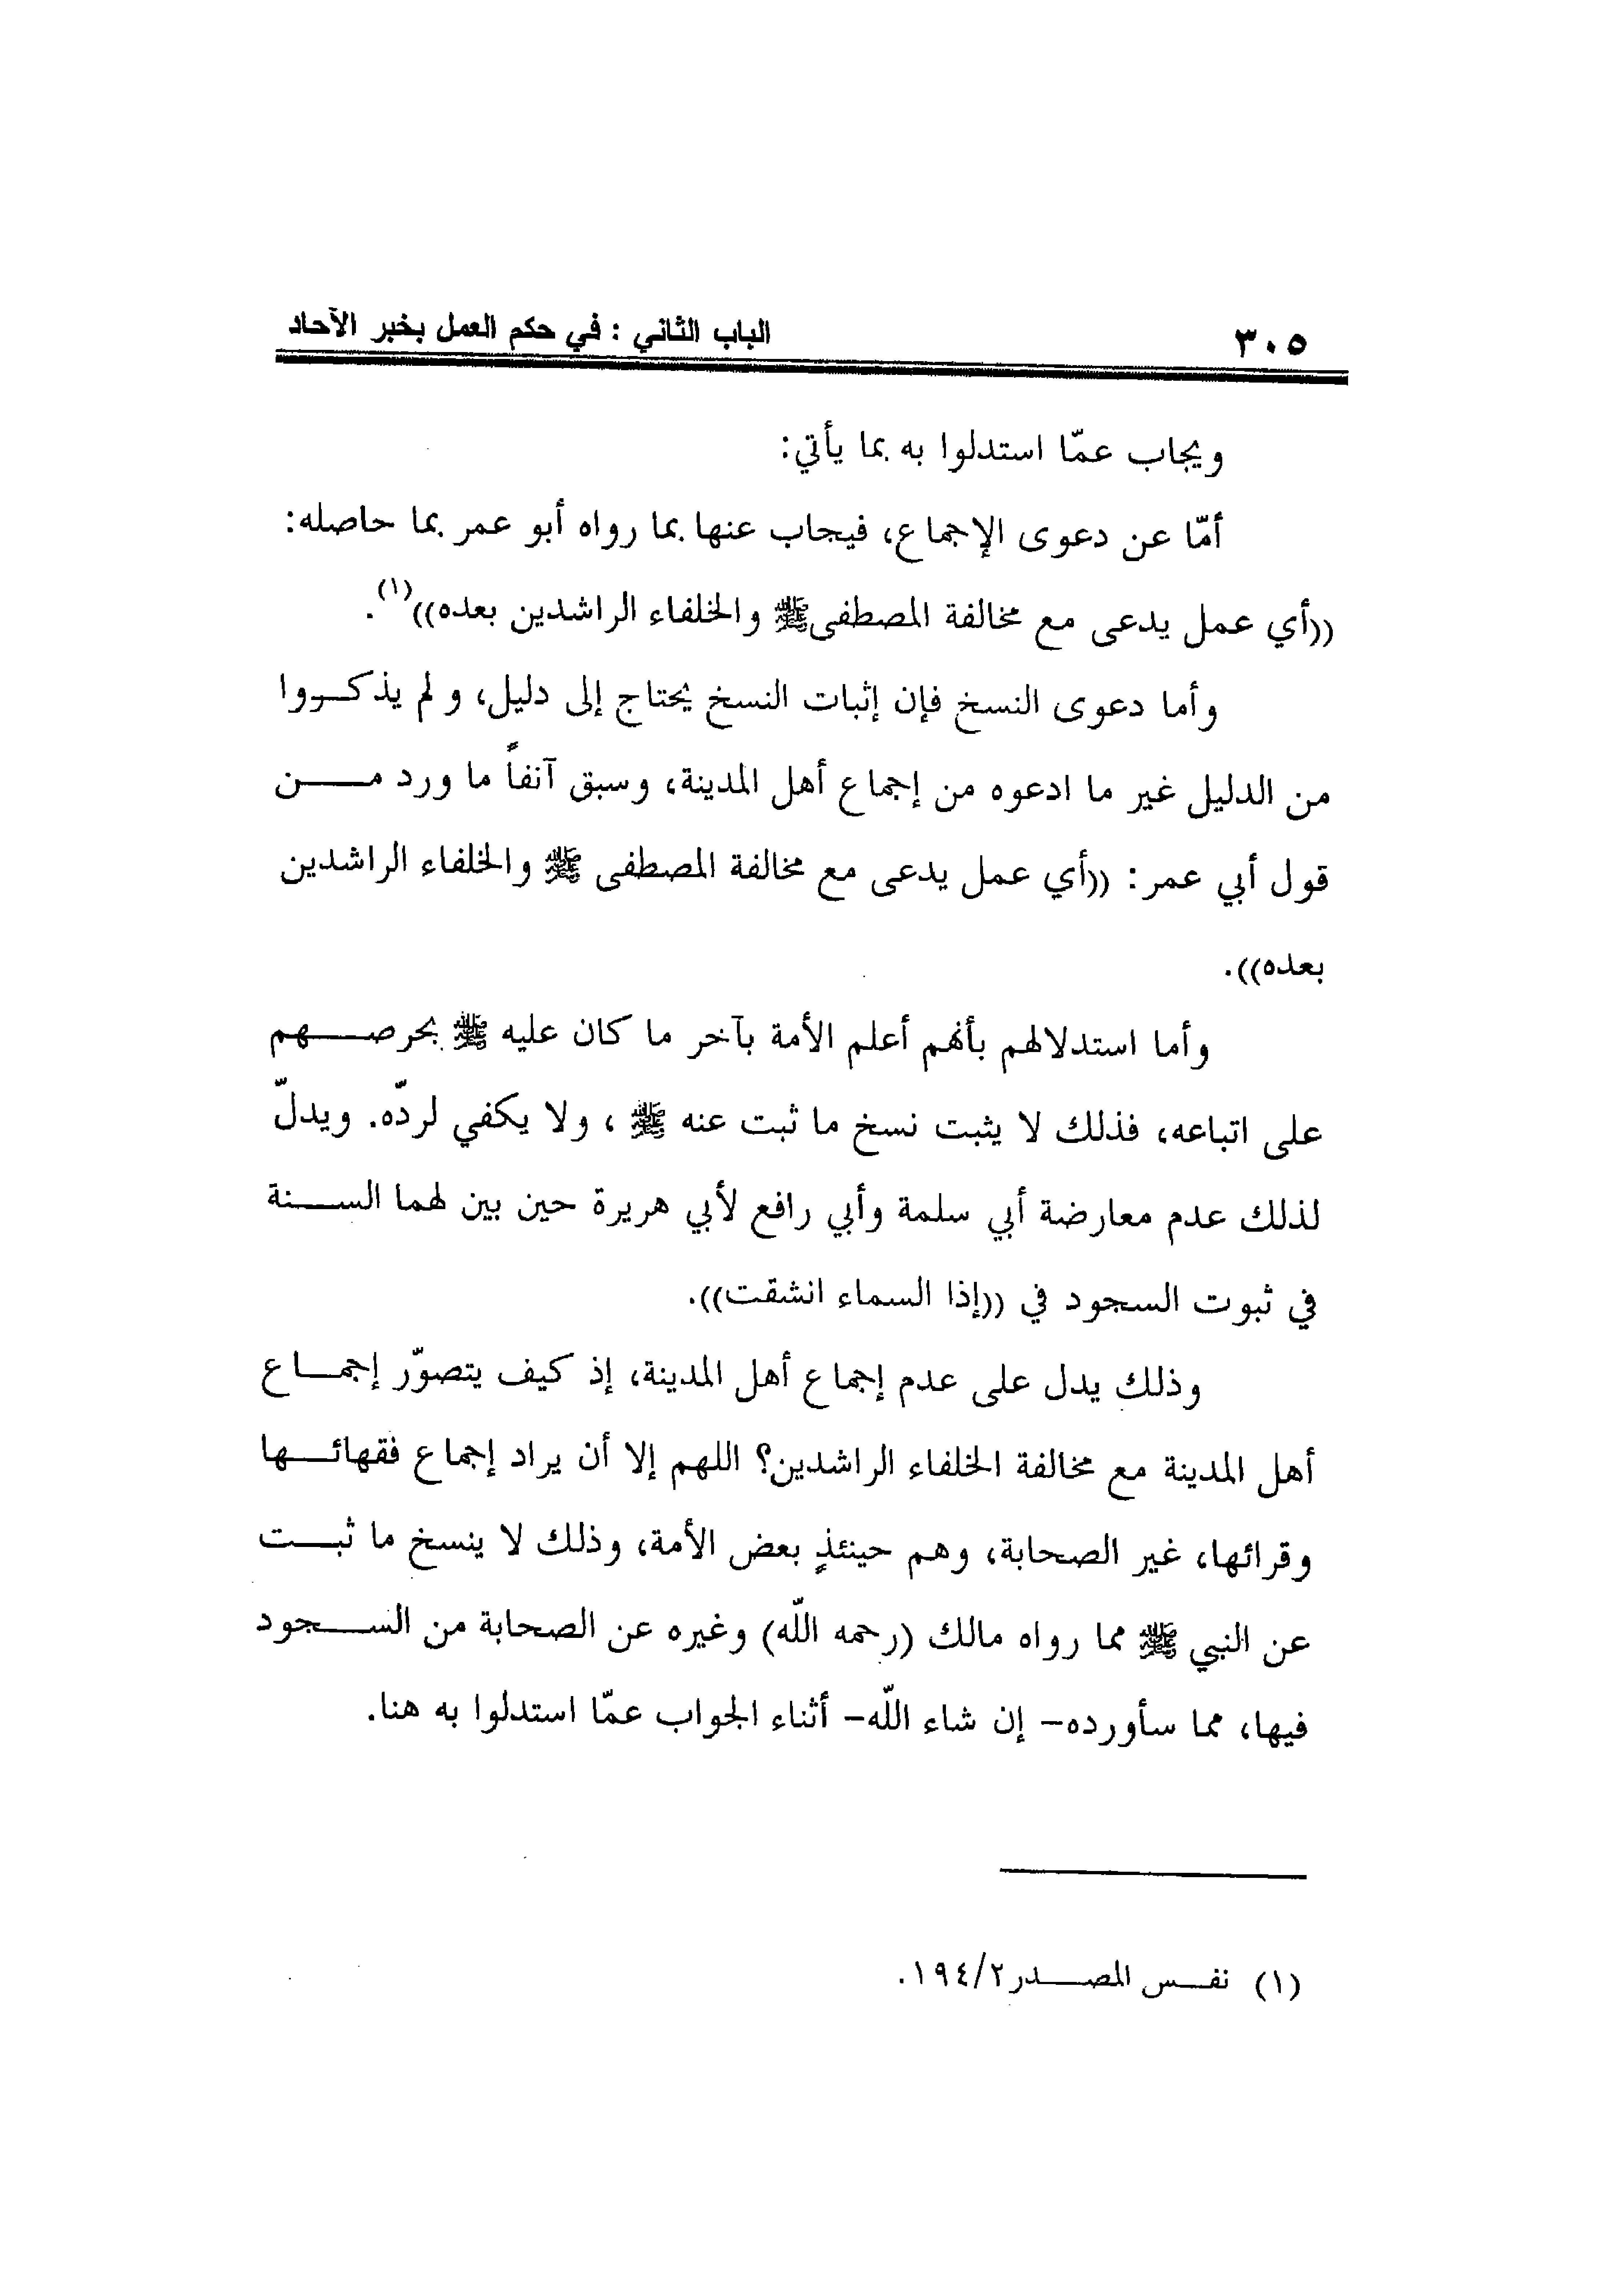 ٣٠٥
الباب الثاني : في حكم العمل بخبر الآحاد
ويجاب عمّا استدلوا به بما يأتي:
أمّا عن دعوى الإجماع، فيجاب عنها بما رواه أبو عمر بما حاصله:
((أي عمل يدعى مع مخالفة المصطفىﷺ والخلفاء الراشدين بعده))(١).
وأما دعوى النسخ فإن إثبات النسخ يحتاج إلى دليل، ولم يذكروا
من الدليل غير ما ادعوه من إجماع أهل المدينة، وسبق آنفاً ما ورد من
قول أبي عمر: ((أي عمل يدعى مع مخالفة المصطفى ﷺ والخلفاء الراشدين
بعده)).
وأما استدلالهم بأنهم أعلم الأمة بآخر ما كان عليه ﷺ بحرصهم
على اتباعه، فذلك لا يثبت نسخ ما ثبت عنه ﷺ ، ولا يكفي لردّه. ويدلّ
لذلك عدم معارضة أبي سلمة وأبي رافع لأبي هريرة حين بين لهما السنة
في ثبوت السجود في ((إذا السماء انشقت)).
وذلك يدل على عدم إجماع أهل المدينة، إذ كيف يتصوّر إجماع
أهل المدينة مع مخالفة الخلفاء الراشدين؟ اللهم إلا أن يراد إجماع فقهائها
وقرائها، غير الصحابة، وهم حينئذٍ بعض الأمة، وذلك لا ينسخ ما ثبت
عن النبي ﷺ مما رواه مالك (رحمه اللّه) وغيره عن الصحابة من السجود
فيها، مما سأورده– إن شاء اللّه– أثناء الجواب عمّا استدلوا به هنا.
(١) نفس المصدر٢/١٩٤.